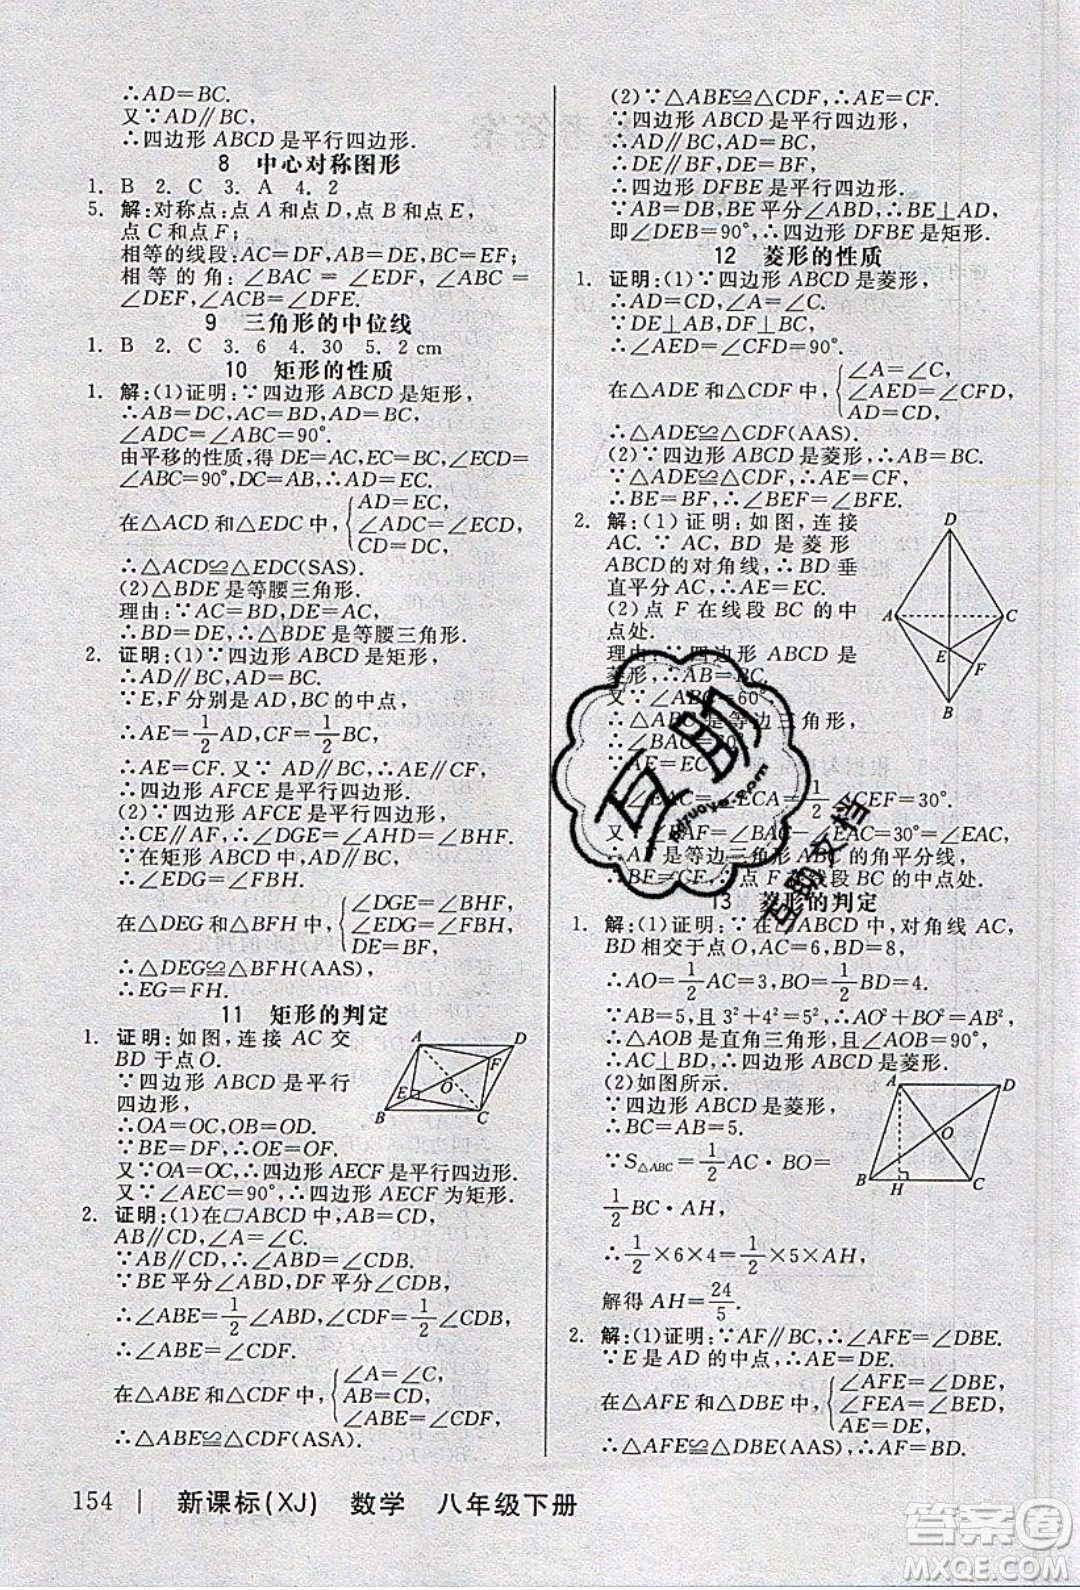 ∴AD=BC.
又∵AD∥BC,
∴四边形 ABCD 是平行四边形.
8 中心对称图形
1. B 2. C 3. A 4. 2
5. 解:对称点:点 A 和点 D,点 B 和点 E,
点 C 和点 F;
相等的线段:AC=DF,AB=DE,BC=EF;
相等的角:∠BAC=∠EDF,∠ABC=
∠DEF,∠ACB=∠DFE.
9 三角形的中位线
1. B 2. C 3. 6 4. 30 5. 2 cm
10 矩形的性质
1. 解:(1)证明:∵四边形 ABCD 是矩形,
∴AB=DC,AC=BD,AD=BC,
∠ADC=∠ABC=90°.
由平移的性质,得 DE=AC,EC=BC,∠ECD=
∠ABC=90°,DC=AB,∴AD=EC.
在△ACD 和△EDC 中,{AD=EC,
∠ADC=∠ECD,
CD=DC,
∴△ACD≌△EDC(SAS).
(2)△BDE 是等腰三角形.
理由:∵AC=BD,DE=AC,
∴BD=DE,∴△BDE 是等腰三角形.
2. 证明:(1)∵四边形 ABCD 是矩形,
∴AD∥BC,AD=BC.
∵E,F 分别是 AD,BC 的中点,
∴AE=1/2AD,CF=1/2BC,
∴AE=CF. 又∵AE∥CF,
∴四边形 AFCE 是平行四边形.
(2)∵四边形 AFCE 是平行四边形,
∴CE∥AF,∴∠DGE=∠AHD=∠BHF.
∵在矩形 ABCD 中,AD∥BC,
∴∠EDG=∠FBH.
在△DEG 和△BFH 中,{∠DGE=∠BHF,
∠EDG=∠FBH,
DE=BF,
∴△DEG≌△BFH(AAS),
∴EG=FH.
11 矩形的判定
1. 证明:如图,连接 AC 交
BD 于点 O.
∵四边形 ABCD 是平行
四边形,
∴OA=OC,OB=OD.
∵BE=DF,∴OE=OF.
又∵OA=OC,∴四边形 AECF 是平行四边形.
又∵∠AEC=90°,∴四边形 AECF 为矩形.
A D F E O B C
2. 证明:(1)在▱ABCD 中,AB=CD,
AB∥CD,∴∠A=∠C.
∵AB∥CD,∴∠ABD=∠CDB.
∵BE 平分∠ABD,DF 平分∠CDB,
∴∠ABE=1/2∠ABD,∠CDF=1/2∠CDB,
∴∠ABE=∠CDF.
在△ABE 和△CDF 中,{∠A=∠C,
AB=CD,
∠ABE=∠CDF,
∴△ABE≌△CDF(ASA).
(2)∵△ABE≌△CDF,∴AE=CF.
∵四边形 ABCD 是平行四边形,
∴AD∥BC,AD=BC,
∴DE∥BF,DE=BF,
∴四边形 DFBE 是平行四边形.
∵AB=DB,BE 平分∠ABD,∴BE⊥AD,
即∠DEB=90°,∴四边形 DFBE 是矩形.
12 菱形的性质
1. 证明:(1)∵四边形 ABCD 是菱形,
∴AD=CD,∠A=∠C.
∵DE⊥AB,DF⊥BC,
∴∠AED=∠CFD=90°.
在△ADE 和△CDF 中,{∠A=∠C,
∠AED=∠CFD,
AD=CD,
∴△ADE≌△CDF(AAS).
(2)∵四边形 ABCD 是菱形,
∴AB=CB. ∵△ADE≌△CDF,∴AE=CF,
∴BE=BF,∴∠BEF=∠BFE.
2. 解:(1)证明:如图,连接
AC. ∵AC,BD 是菱形
ABCD 的对角线,∴BD 垂
直平分 AC,∴AE=EC.
(2)点 F 在线段 BC 的中
点处.
理由:∵四边形 ABCD 是
菱形,∴AB=BC.
又∵∠ABC=60°,
∴△ABC 是等边三角形,
∴∠BAC=60°.
∵AE=EC,
∴∠EAC=∠ECA=1/2∠CEF=30°.
又∵∠EAF=∠BAC-∠EAC=30°=∠EAC,
∴AF 是等边三角形 ABC 的角平分线,
∴BF=CF,∴点 F 在线段 BC 的中点处.
D A C E F B
13 菱形的判定
1. 解:(1)证明:∵在▱ABCD 中,对角线 AC,
BD 相交于点 O,AC=6,BD=8,
∴AO=1/2AC=3,BO=1/2BD=4.
∵AB=5,且 3²+4²=5²,∴AO²+BO²=AB²,
∴△AOB 是直角三角形,且∠AOB=90°,
∴AC⊥BD,∴四边形 ABCD 是菱形.
(2)如图所示.
∵四边形 ABCD 是菱形,
∴BC=AB=5.
∵S△ABC=1/2AC·BO=
1/2BC·AH,
∴1/2×6×4=1/2×5×AH,
解得 AH=24/5.
A D O B H C
2. 解:(1)证明:∵AF∥BC,∴∠AFE=∠DBE.
∵E 是 AD 的中点,∴AE=DE.
在△AFE 和△DBE 中,{∠AFE=∠DBE,
∠FEA=∠BED,
AE=DE,
∴△AFE≌△DBE(AAS),∴AF=DB.
154 | 新课标(XJ) 数学 八年级下册
互助文档
bdzuoye.com
答案圈
MXQE.COM